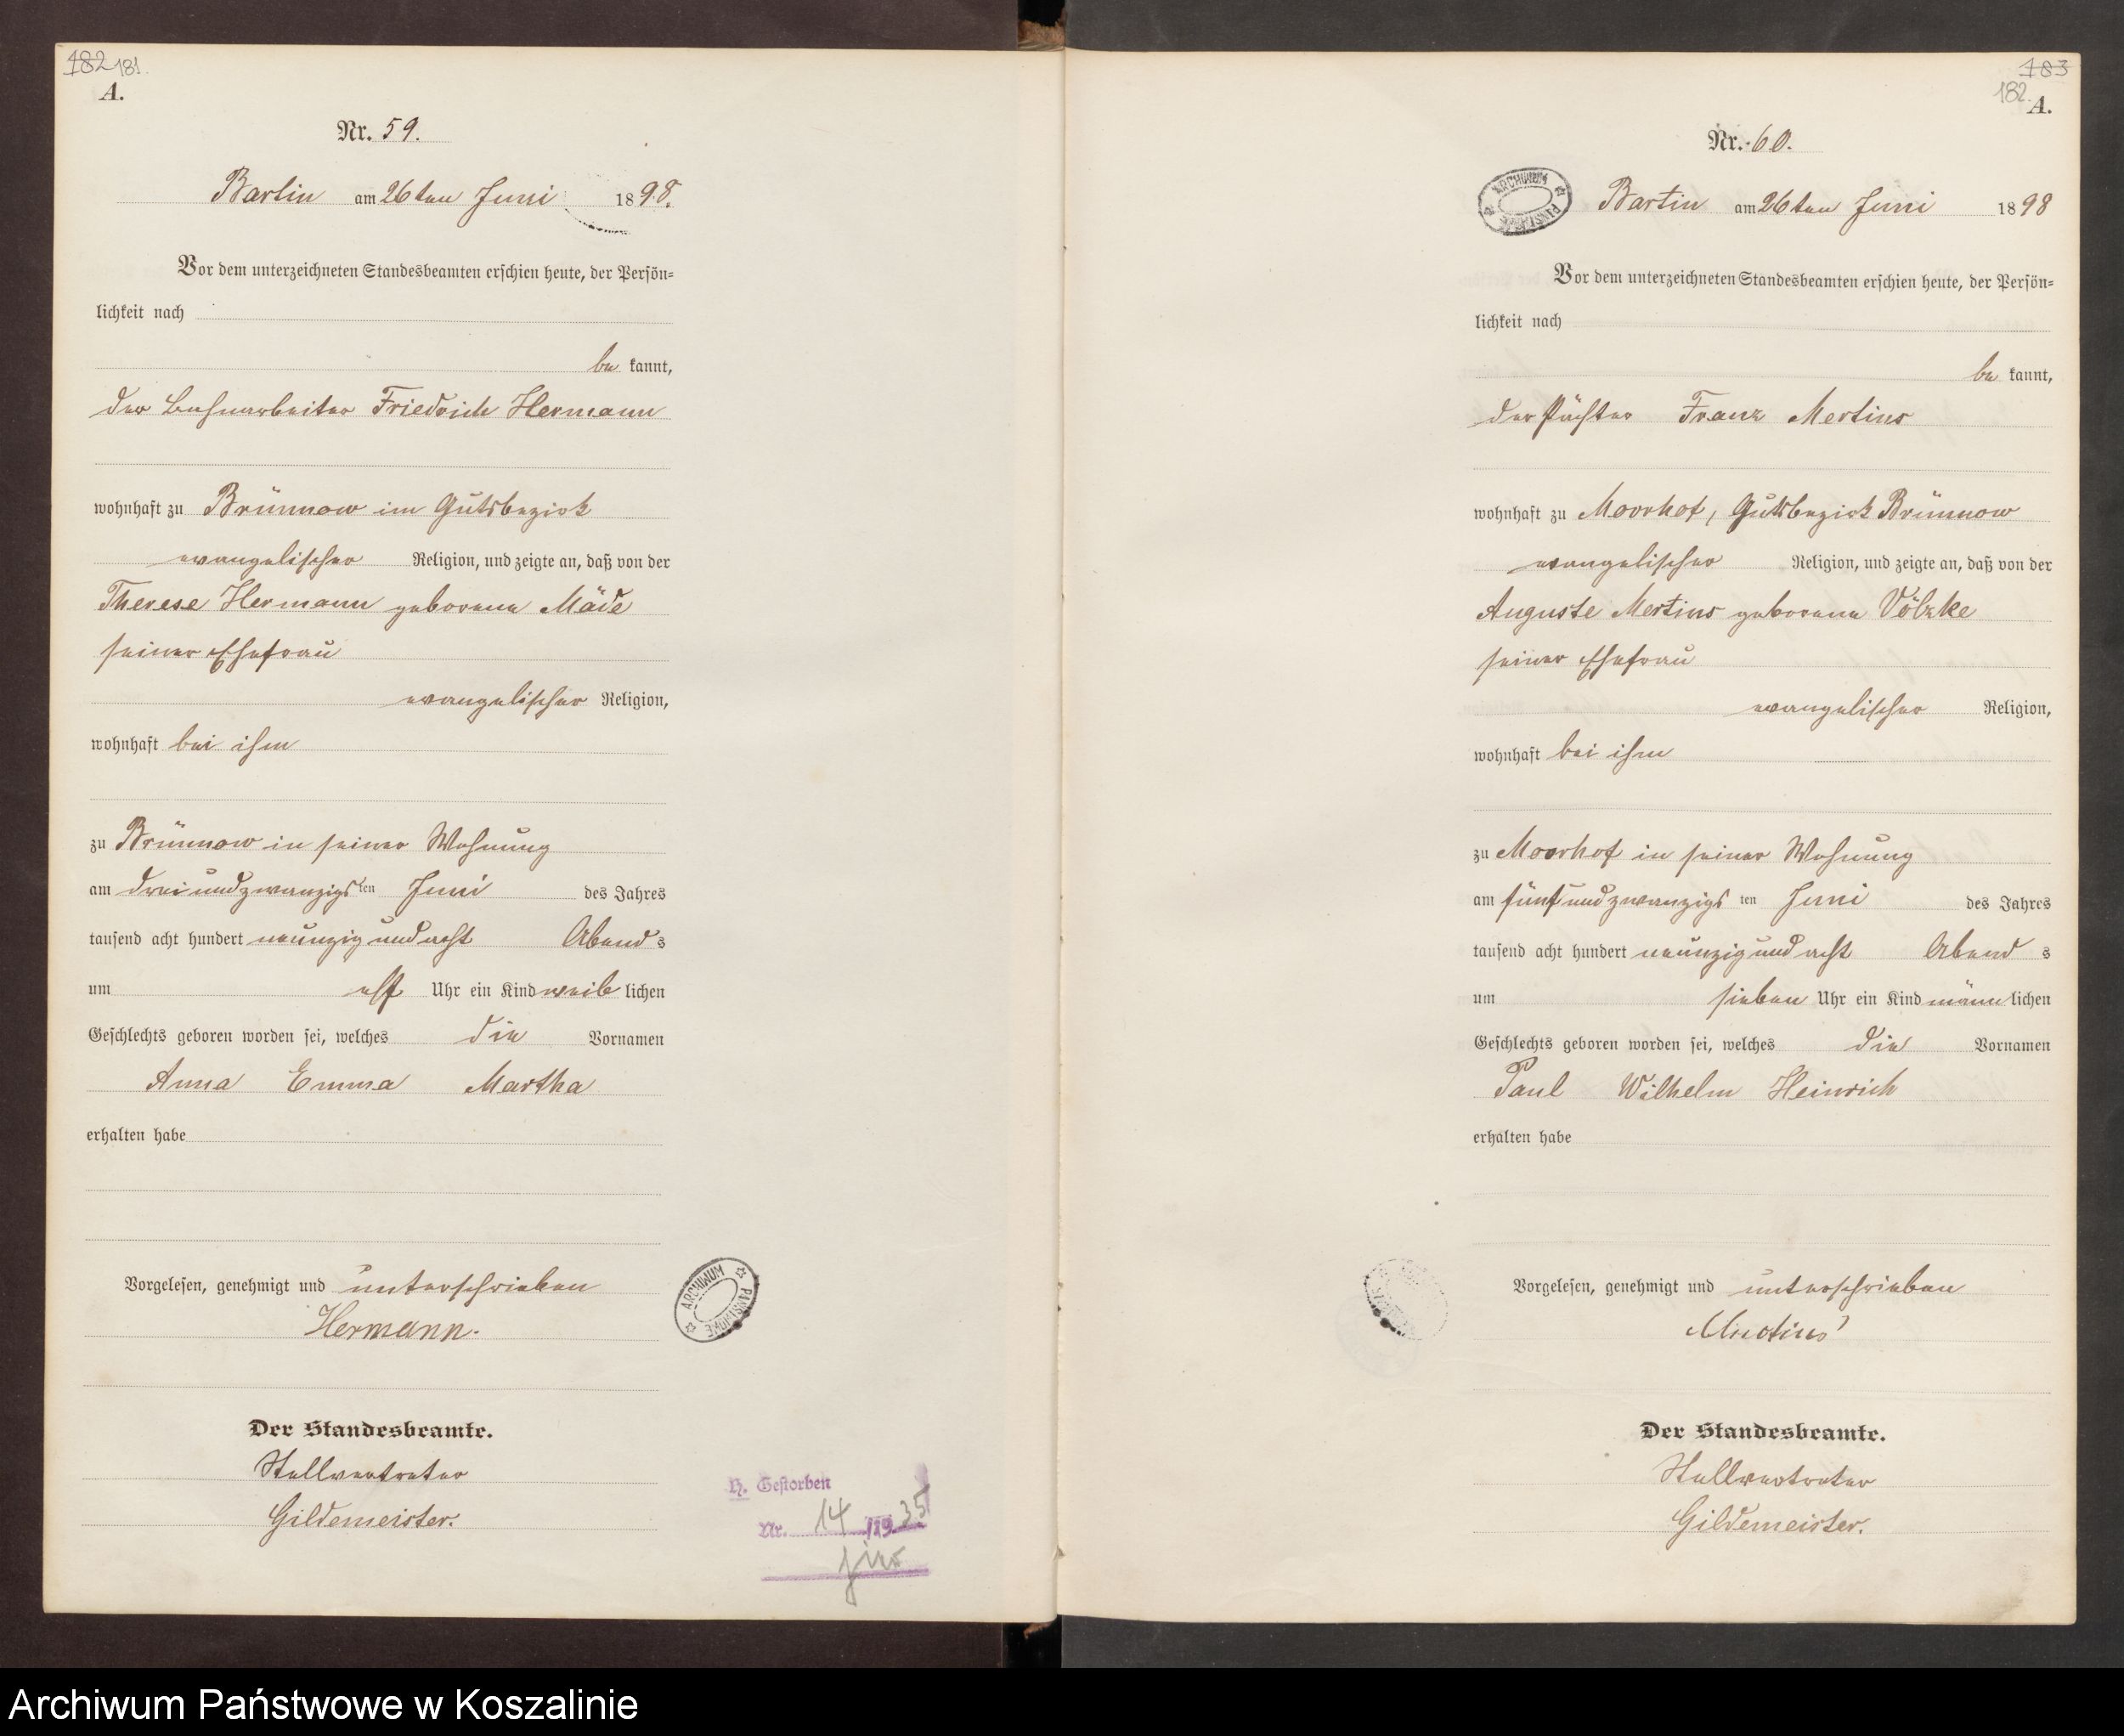 182 181.
A.
Nr. 59.
Bartin am 26ten Juni 1898.
Vor dem unterzeichneten Standesbeamten erschien heute, der Persön=
lichkeit nach
be kannt,
der Bahnarbeiter Friedrich Hermann
wohnhaft zu Brünnow im Gutsbezirk
evangelischer Religion, und zeigte an, daß von der
Therese Hermann geborene Mäde
seiner Ehefrau
evangelischer Religion,
wohnhaft bei ihm
zu Brünnow in seiner Wohnung
am dreiundzwanzigsten Juni des Jahres
tausend acht hundert neunzig und acht Abends
um elf Uhr ein Kind weiblichen
Geschlechts geboren worden sei, welches die Vornamen
Anna Emma Martha
erhalten habe
Vorgelesen, genehmigt und unterschrieben
Hermann.
ARCHIWUM PAŃSTWOWE
Der Standesbeamte.
Stellvertreter
Gildemeister.
H. Gestorben
Nr. 14 /1935
183
182.
A.
Nr. 60.
ARCHIWUM PAŃSTWOWE
Bartin am 26ten Juni 1898
Vor dem unterzeichneten Standesbeamten erschien heute, der Persön=
lichkeit nach
be kannt,
der Pächter Franz Mertins
wohnhaft zu Moorhof, Gutsbezirk Brünnow
evangelischer Religion, und zeigte an, daß von der
Auguste Mertins geborene Völzke
seiner Ehefrau
evangelischer Religion,
wohnhaft bei ihm
zu Moorhof in seiner Wohnung
am fünfundzwanzigsten Juni des Jahres
tausend acht hundert neunzig und acht Abends
um sieben Uhr ein Kind männlichen
Geschlechts geboren worden sei, welches die Vornamen
Paul Wilhelm Heinrich
erhalten habe
Vorgelesen, genehmigt und unterschrieben
Mertins
Der Standesbeamte.
Stellvertreter
Gildemeister.
Archiwum Państwowe w Koszalinie